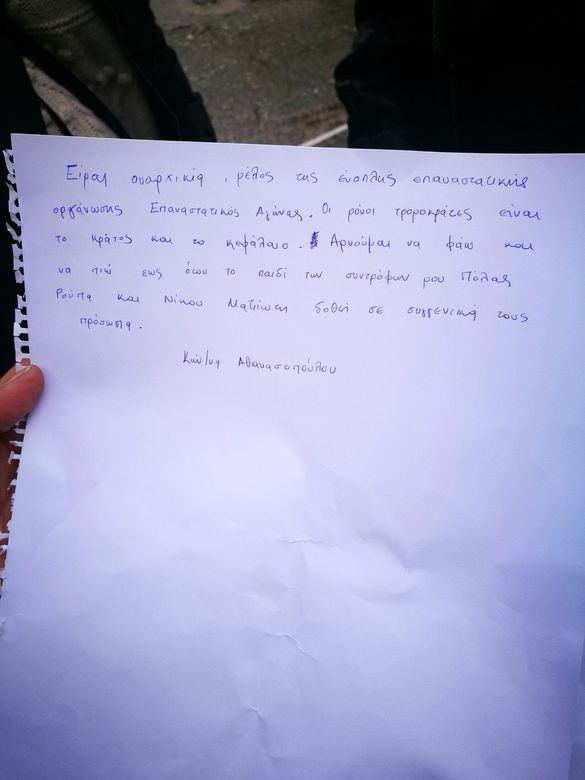 Είμαι αναρχικιά, μέλος της ένοπλης επαναστατικής
οργάνωσης Επαναστατικός Αγώνας. Οι μόνοι τρομοκράτες είναι
το κράτος και το κεφάλαιο. Αρνούμαι να φάω και
να πιώ εως ότου το παιδί των συντρόφων μου Πόλας
Ρούπα και Νίκου Μαζιώτη δοθεί σε συγγενικά τους
πρόσωπα.
Κων/να Αθανασοπούλου